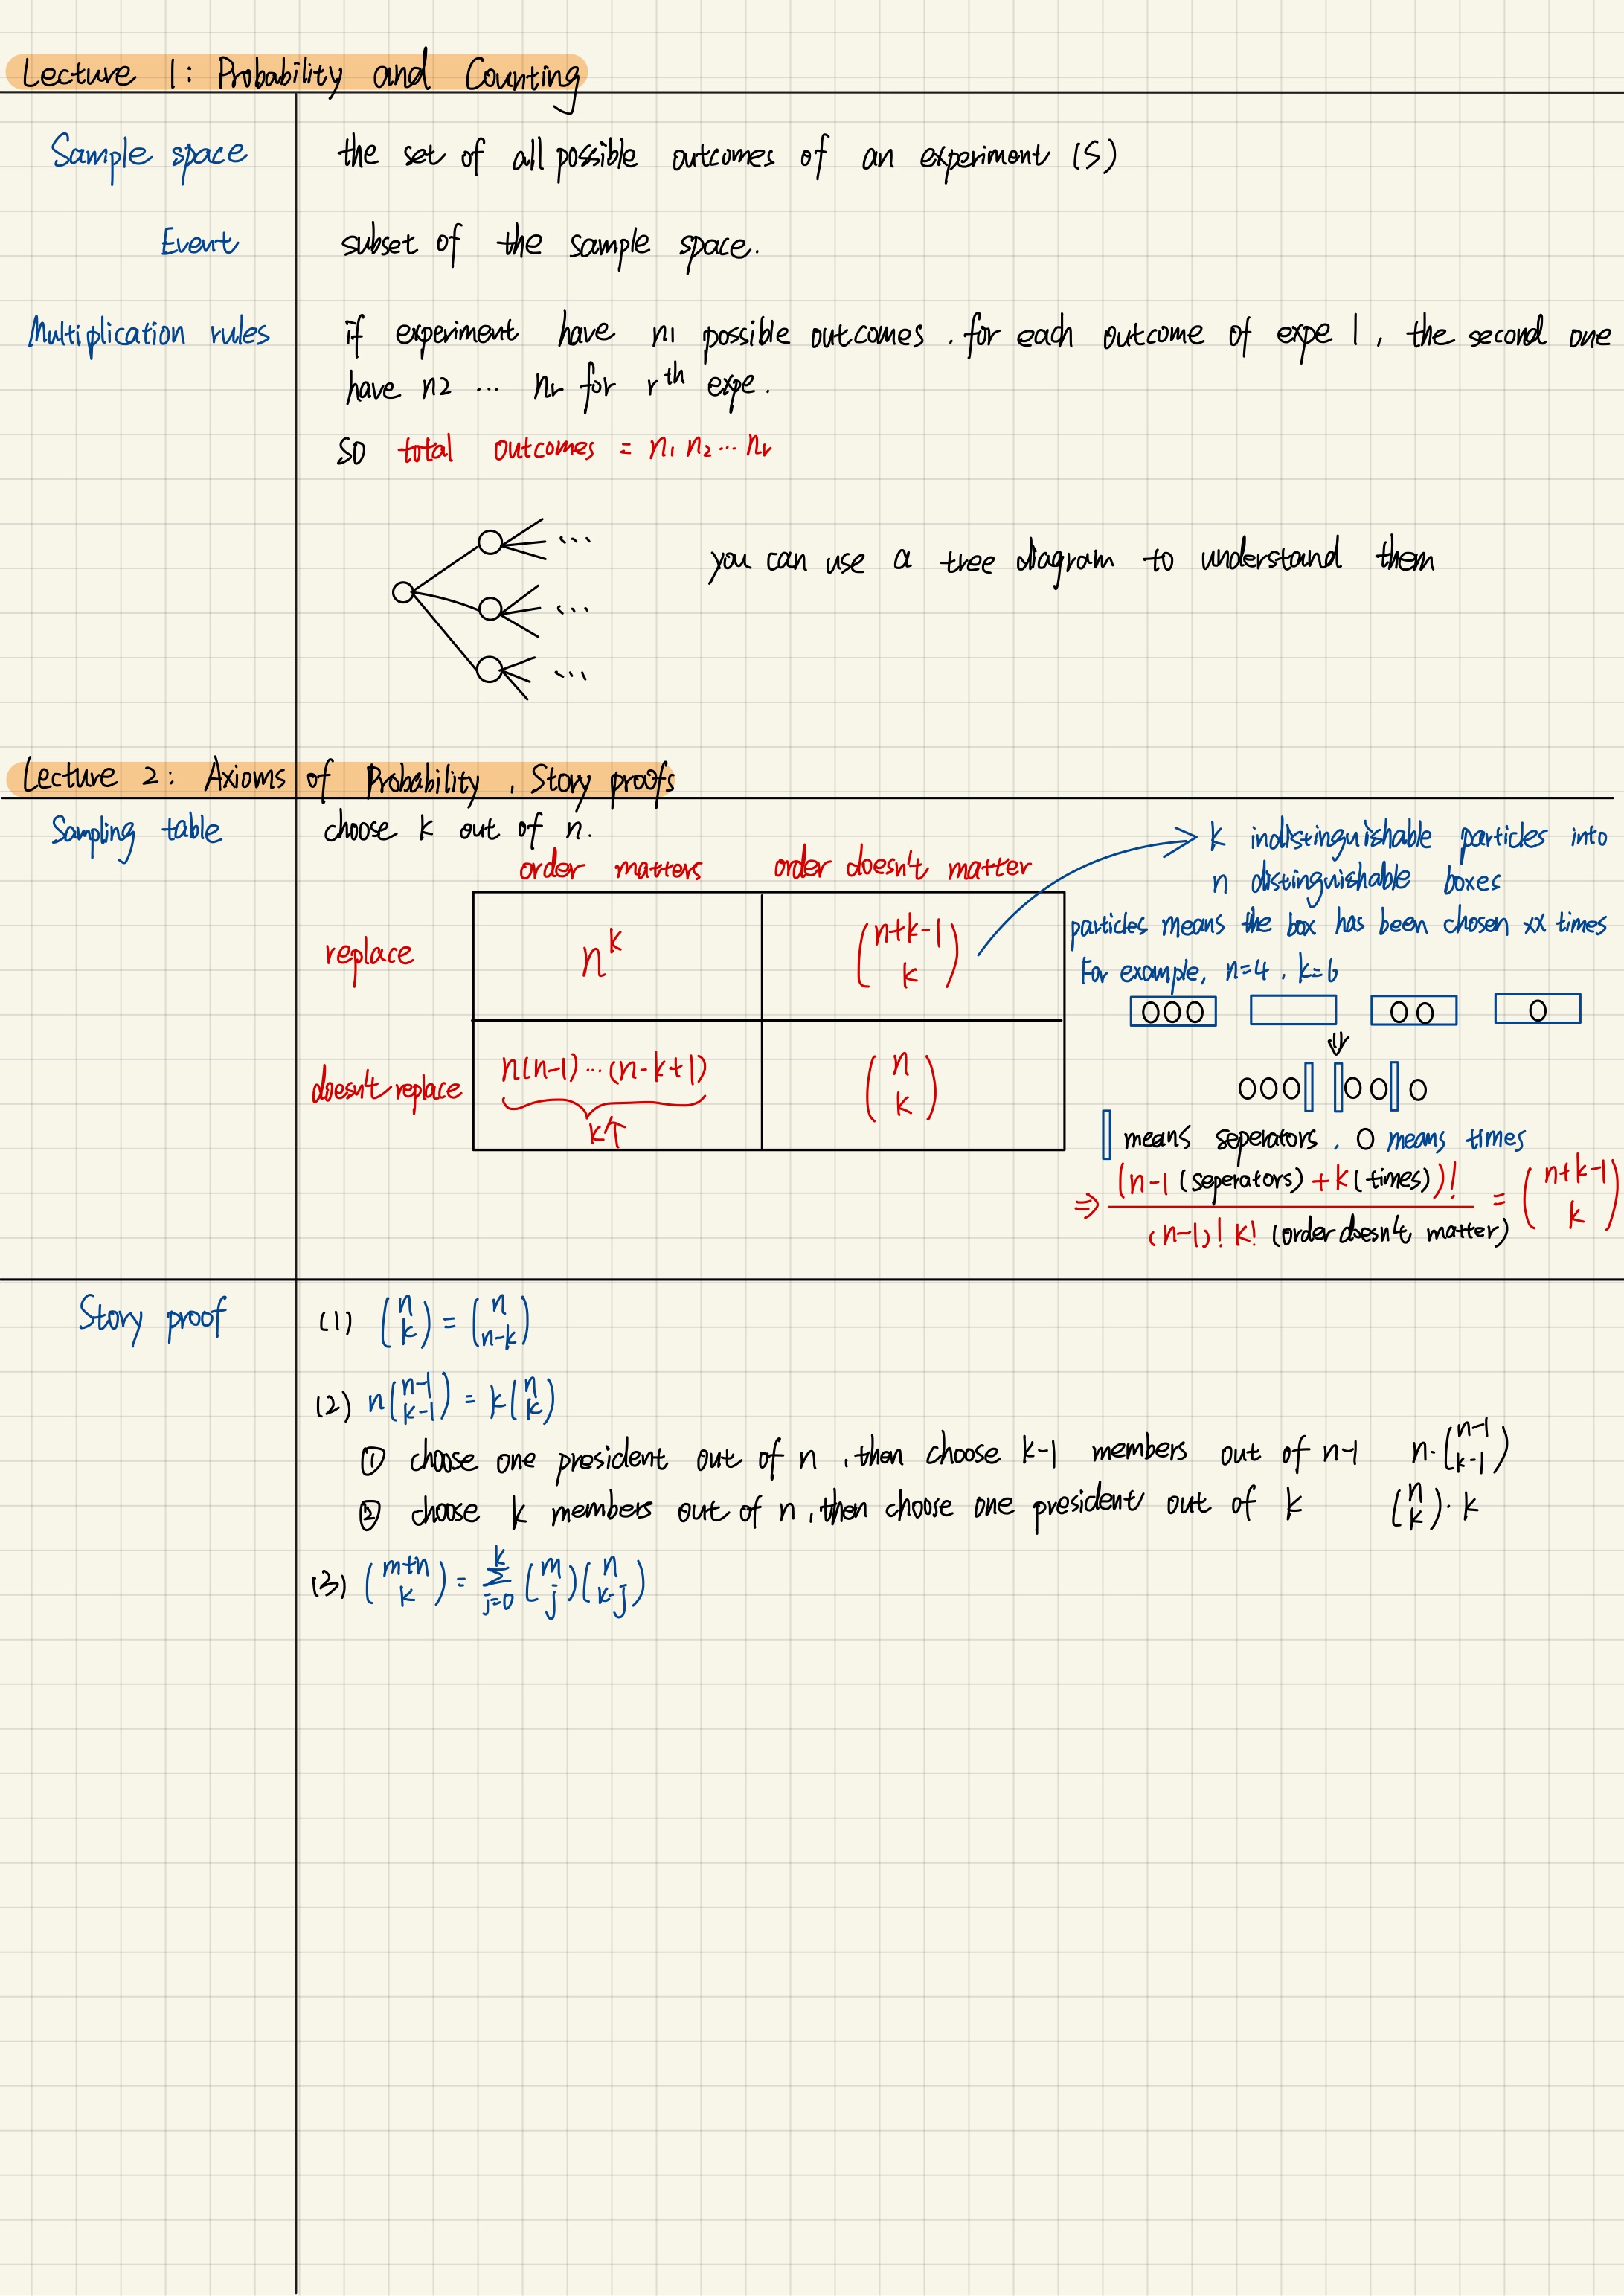 Lecture 1: Probability and Counting
Sample space the set of all possible outcomes of an experiment (S)
Event subset of the sample space.
Multiplication rules if experiment have n1 possible outcomes. for each outcome of expe 1, the second one
have n2 ... nr for r^th expe.
so total outcomes = n₁ n₂ ... nᵣ
...
you can use a tree diagram to understand them
...
...
Lecture 2: Axioms of Probability, Story proofs
Sampling table choose k out of n.
order matters order doesn't matter
replace n^k (n+k-1 k)
doesn't replace n(n-1)...(n-k+1) (n k)
k个
k indistinguishable particles into
n distinguishable boxes
particles means the box has been chosen xx times
For example, n=4, k=6
means seperators, O means times
⇒ (n-1 (seperators) + k (times))! / (n-1)! k! (order doesn't matter) = (n+k-1 k)
Story proof (1) (n k) = (n n-k)
(2) n(n-1 k-1) = k(n k)
① choose one president out of n, then choose k-1 members out of n-1 n·(n-1 k-1)
② choose k members out of n, then choose one president out of k (n k)·k
(3) (m+n k) = Σ j=0 k (m j)(n k-j)